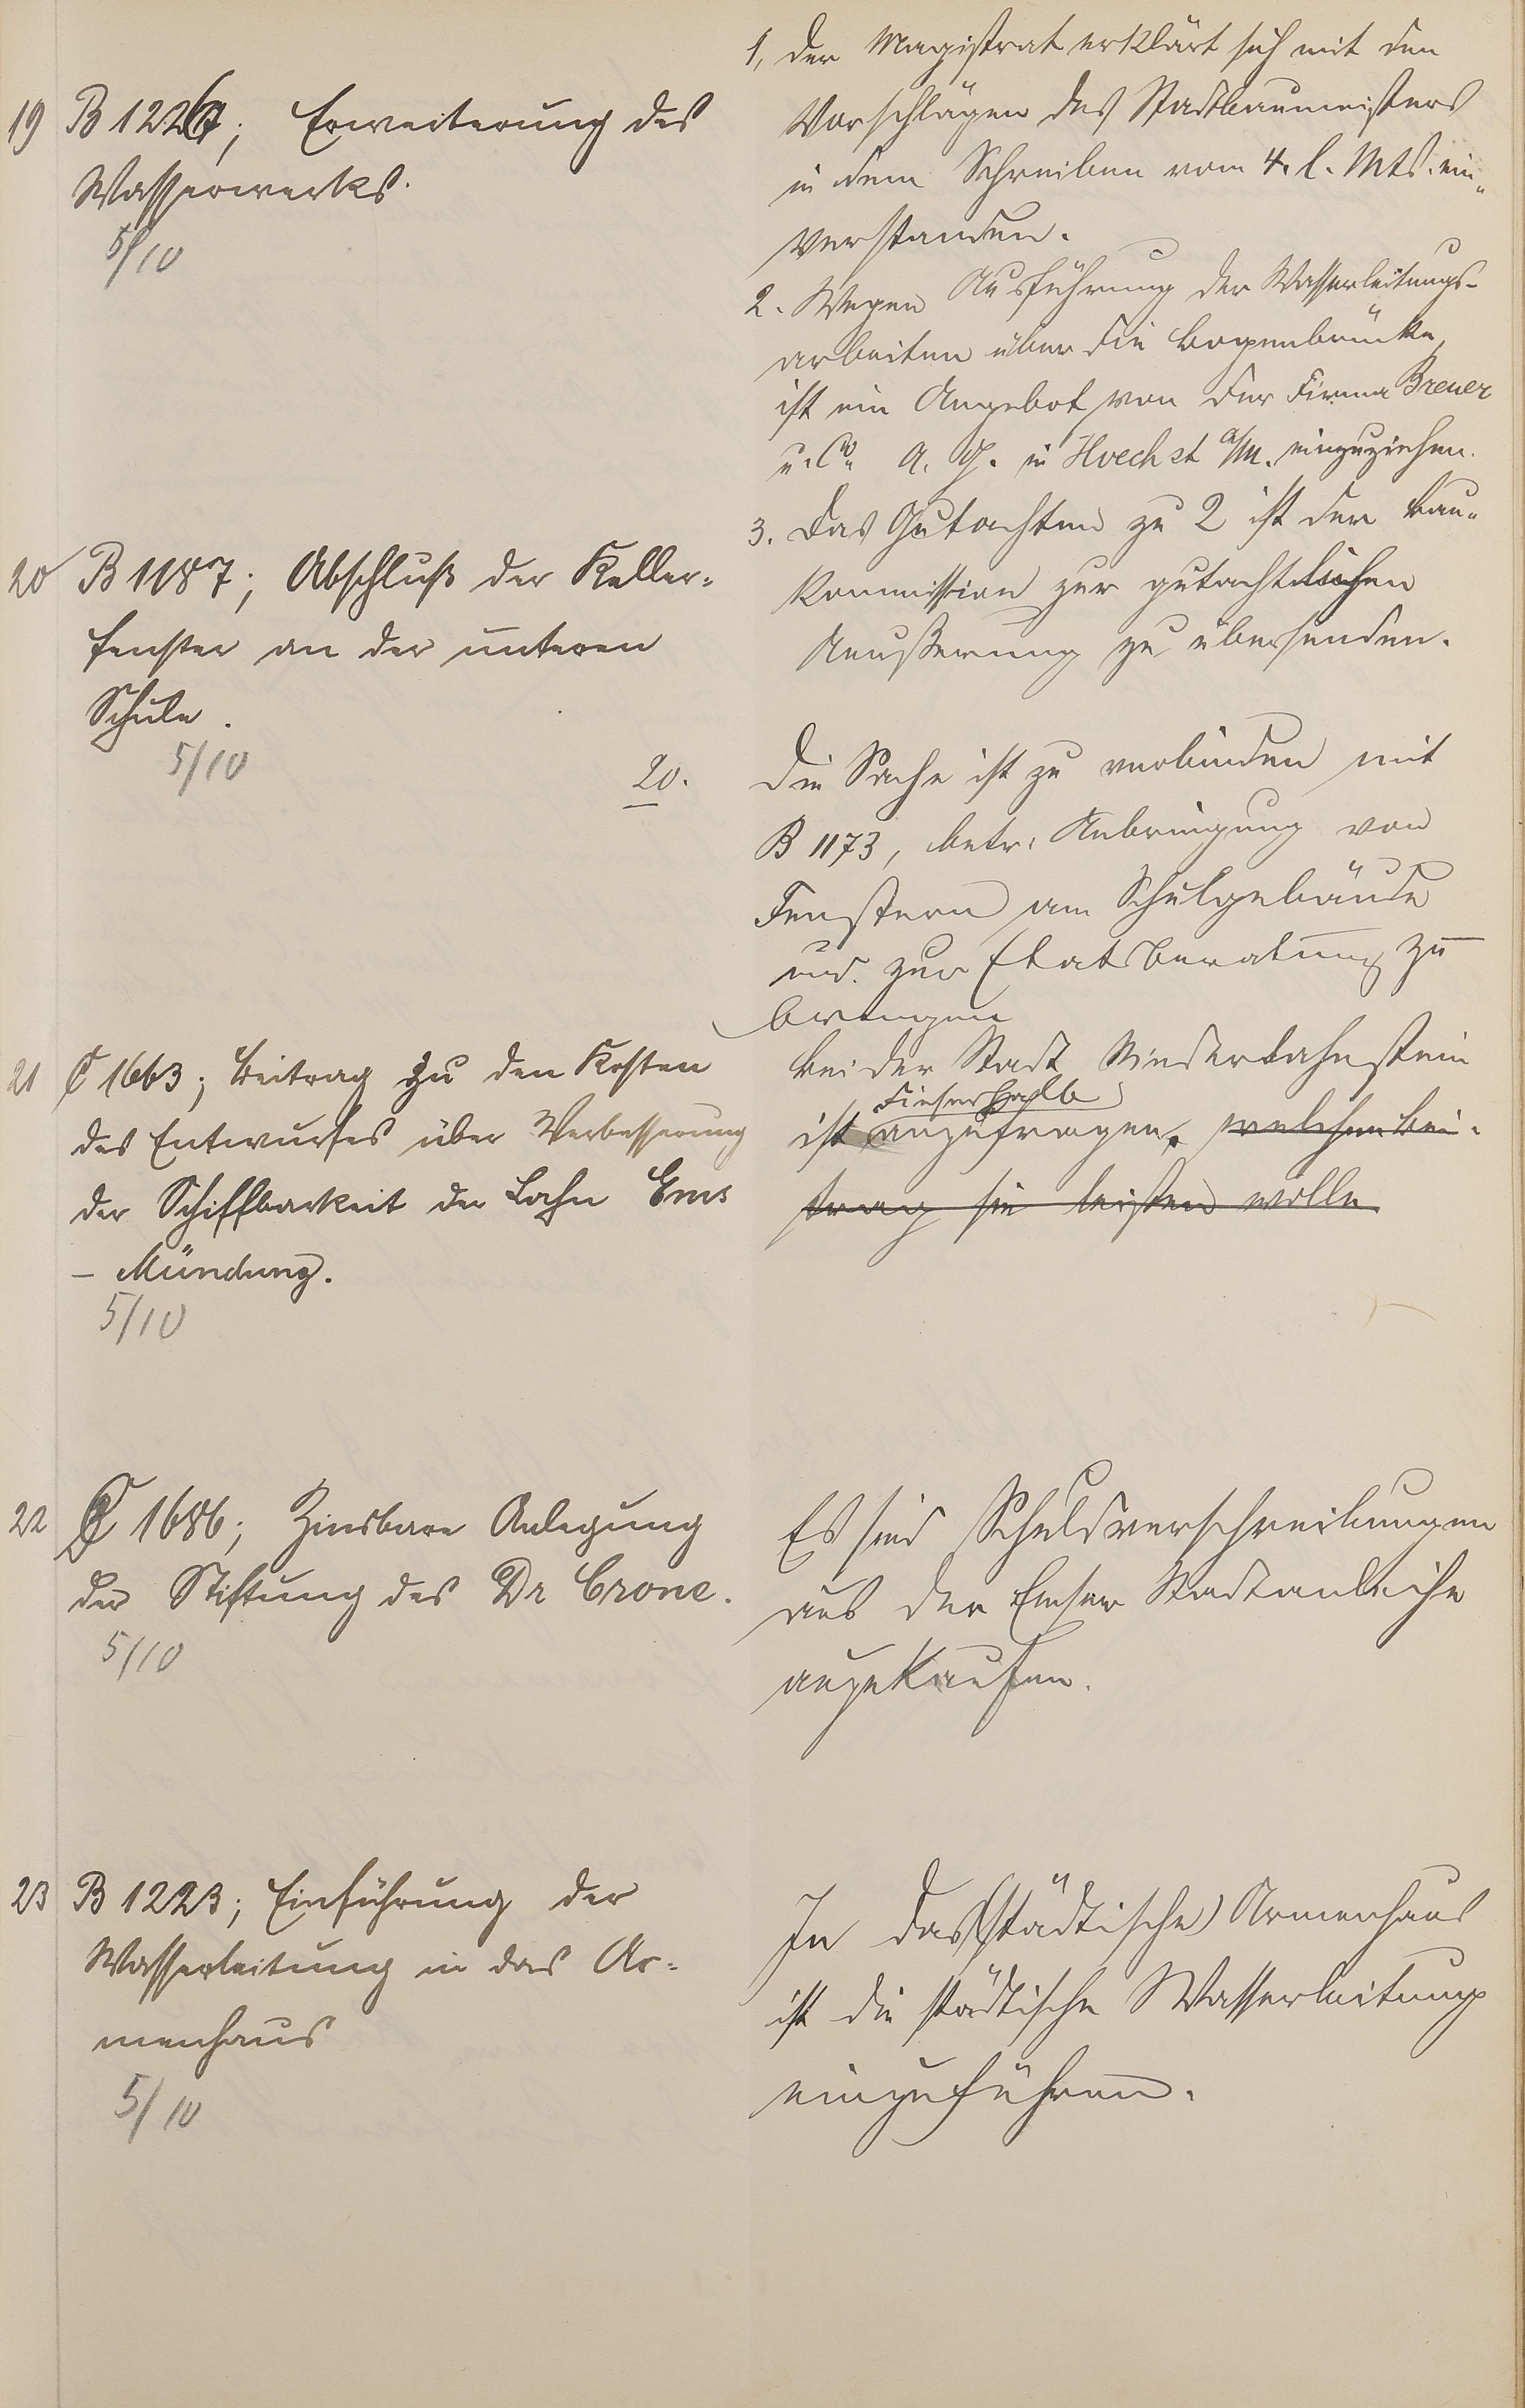 19 B 1226; Erweiterung des
Wasserwerks.
5/10
1, Der Magistrat erklärt sich mit den
Vorschlägen des Stadtbaumeisters
in dem Schreiben vom 4. l. Mts. ein-
verstanden.
2. Wegen Ausführung der Wasserleitungs-
arbeiten über die Bogenbrücke
ist ein Angebot von der Firma Breuer
u. Co. A. G. in Hoechst a/M. einzuziehen.
3. Das Gutachten zu 2 ist der Bau-
kommission zur gutachtlichen
Aeußerung zu übersenden.
20 B 1187; Abschluß der Keller-
fenster an der unteren
Schule.
5/10
20. Die Sache ist zu verbinden mit
B 1173, betr. Anbringung von
Fenstern am Schulgebäude
und zur Etatsberatung zu
bringen
21 C 1663; Beitrag zu den Kosten
des Entwurfes über Verbesserung
der Schiffbarkeit der Lahn Ems
– Mündung.
5/10
Bei der Stadt Niederlahnstein
dieserhalb
ist anzufragen, welchen Bei-
trag sie leisten wolle.
22 C 1686; Zinsbare Anlegung
der Stiftung des Dr Crone.
5/10
Es sind Schuldverschreibungen
aus der Emser Stadtanleihe
anzukaufen.
23 B 1223; Einführung der
Wasserleitung in das Ar-
menhaus
5/10
In das (städtische) Armenhaus
ist die städtische Wasserleitung
einzuführen.